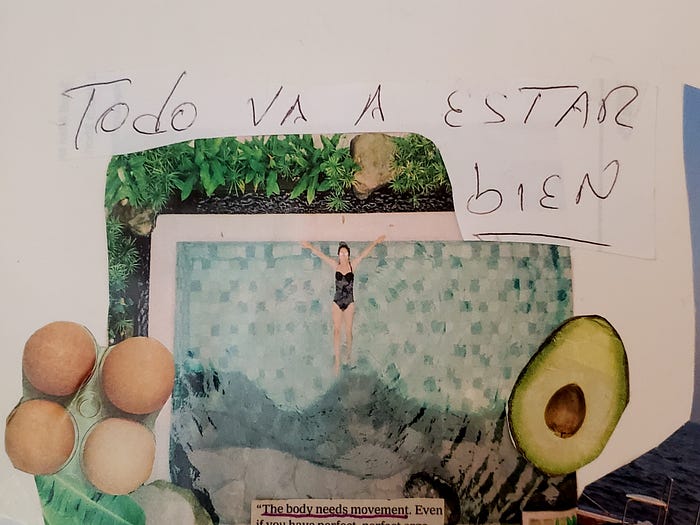 TODO VA A ESTAR
bIEN
"The body needs movement. Even
if you have perfect, perfect eggs